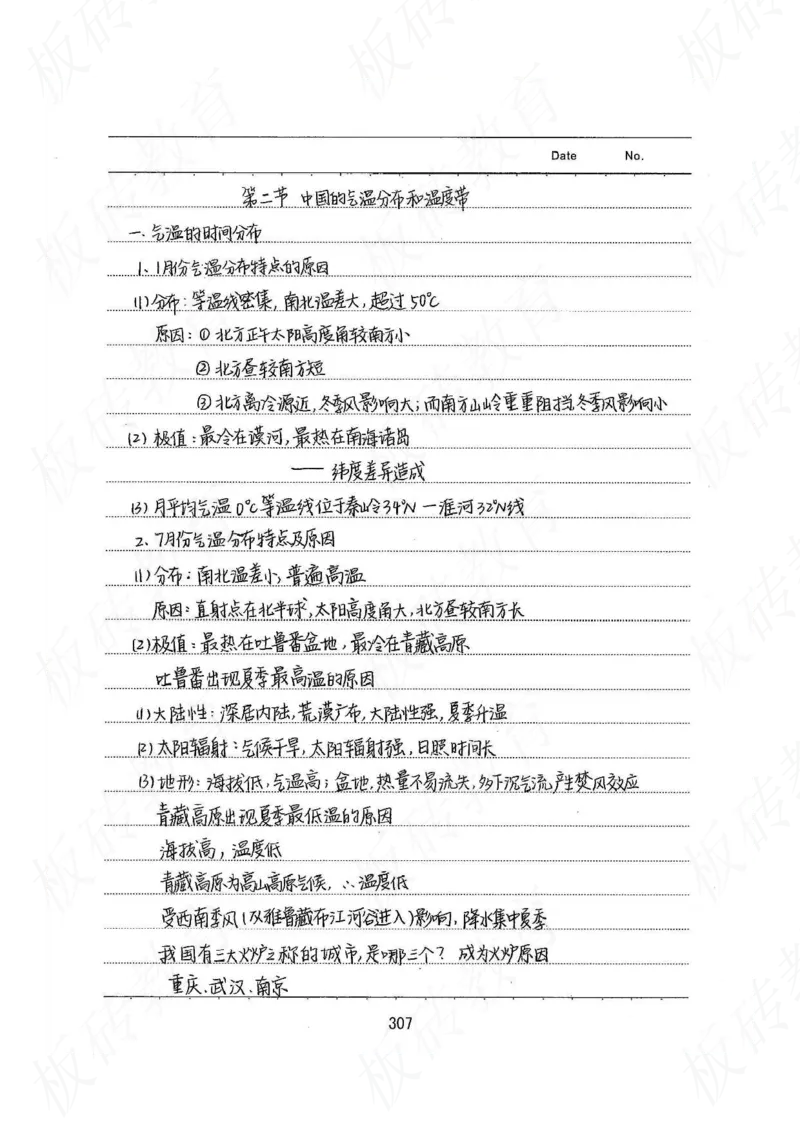 Date No.
第二节 中国的气温分布和温度带
一、气温的时间分布
1、1月份气温分布特点的原因
(1)分布:等温线密集,南北温差大,超过50℃
原因:① 北方正午太阳高度角较南方小
② 北方昼较南方短
③ 北方离冷源近,冬季风影响大;而南方山岭重重阻挡,冬季风影响小
(2) 极值:最冷在漠河,最热在南海诸岛
—— 纬度差异造成
(3) 月平均气温0℃等温线位于秦岭34°N 一淮河32°N线
2、7月份气温分布特点及原因
(1)分布:南北温差小,普遍高温
原因:直射点在北半球,太阳高度角大,北方昼较南方长
(2)极值:最热在吐鲁番盆地,最冷在青藏高原
吐鲁番出现夏季最高温的原因
(1)大陆性:深居内陆,荒漠广布,大陆性强,夏季升温
(2)太阳辐射:气候干旱,太阳辐射强,日照时间长
(3)地形:海拔低,气温高;盆地,热量不易流失,多下沉气流,产生焚风效应
青藏高原出现夏季最低温的原因
海拔高,温度低
青藏高原为高山高原气候,∴温度低
受西南季风(从雅鲁藏布江河谷进入)影响,降水集中夏季
我国有三大火炉之称的城市,是哪三个? 成为火炉原因
重庆、武汉、南京
307
板砖教育